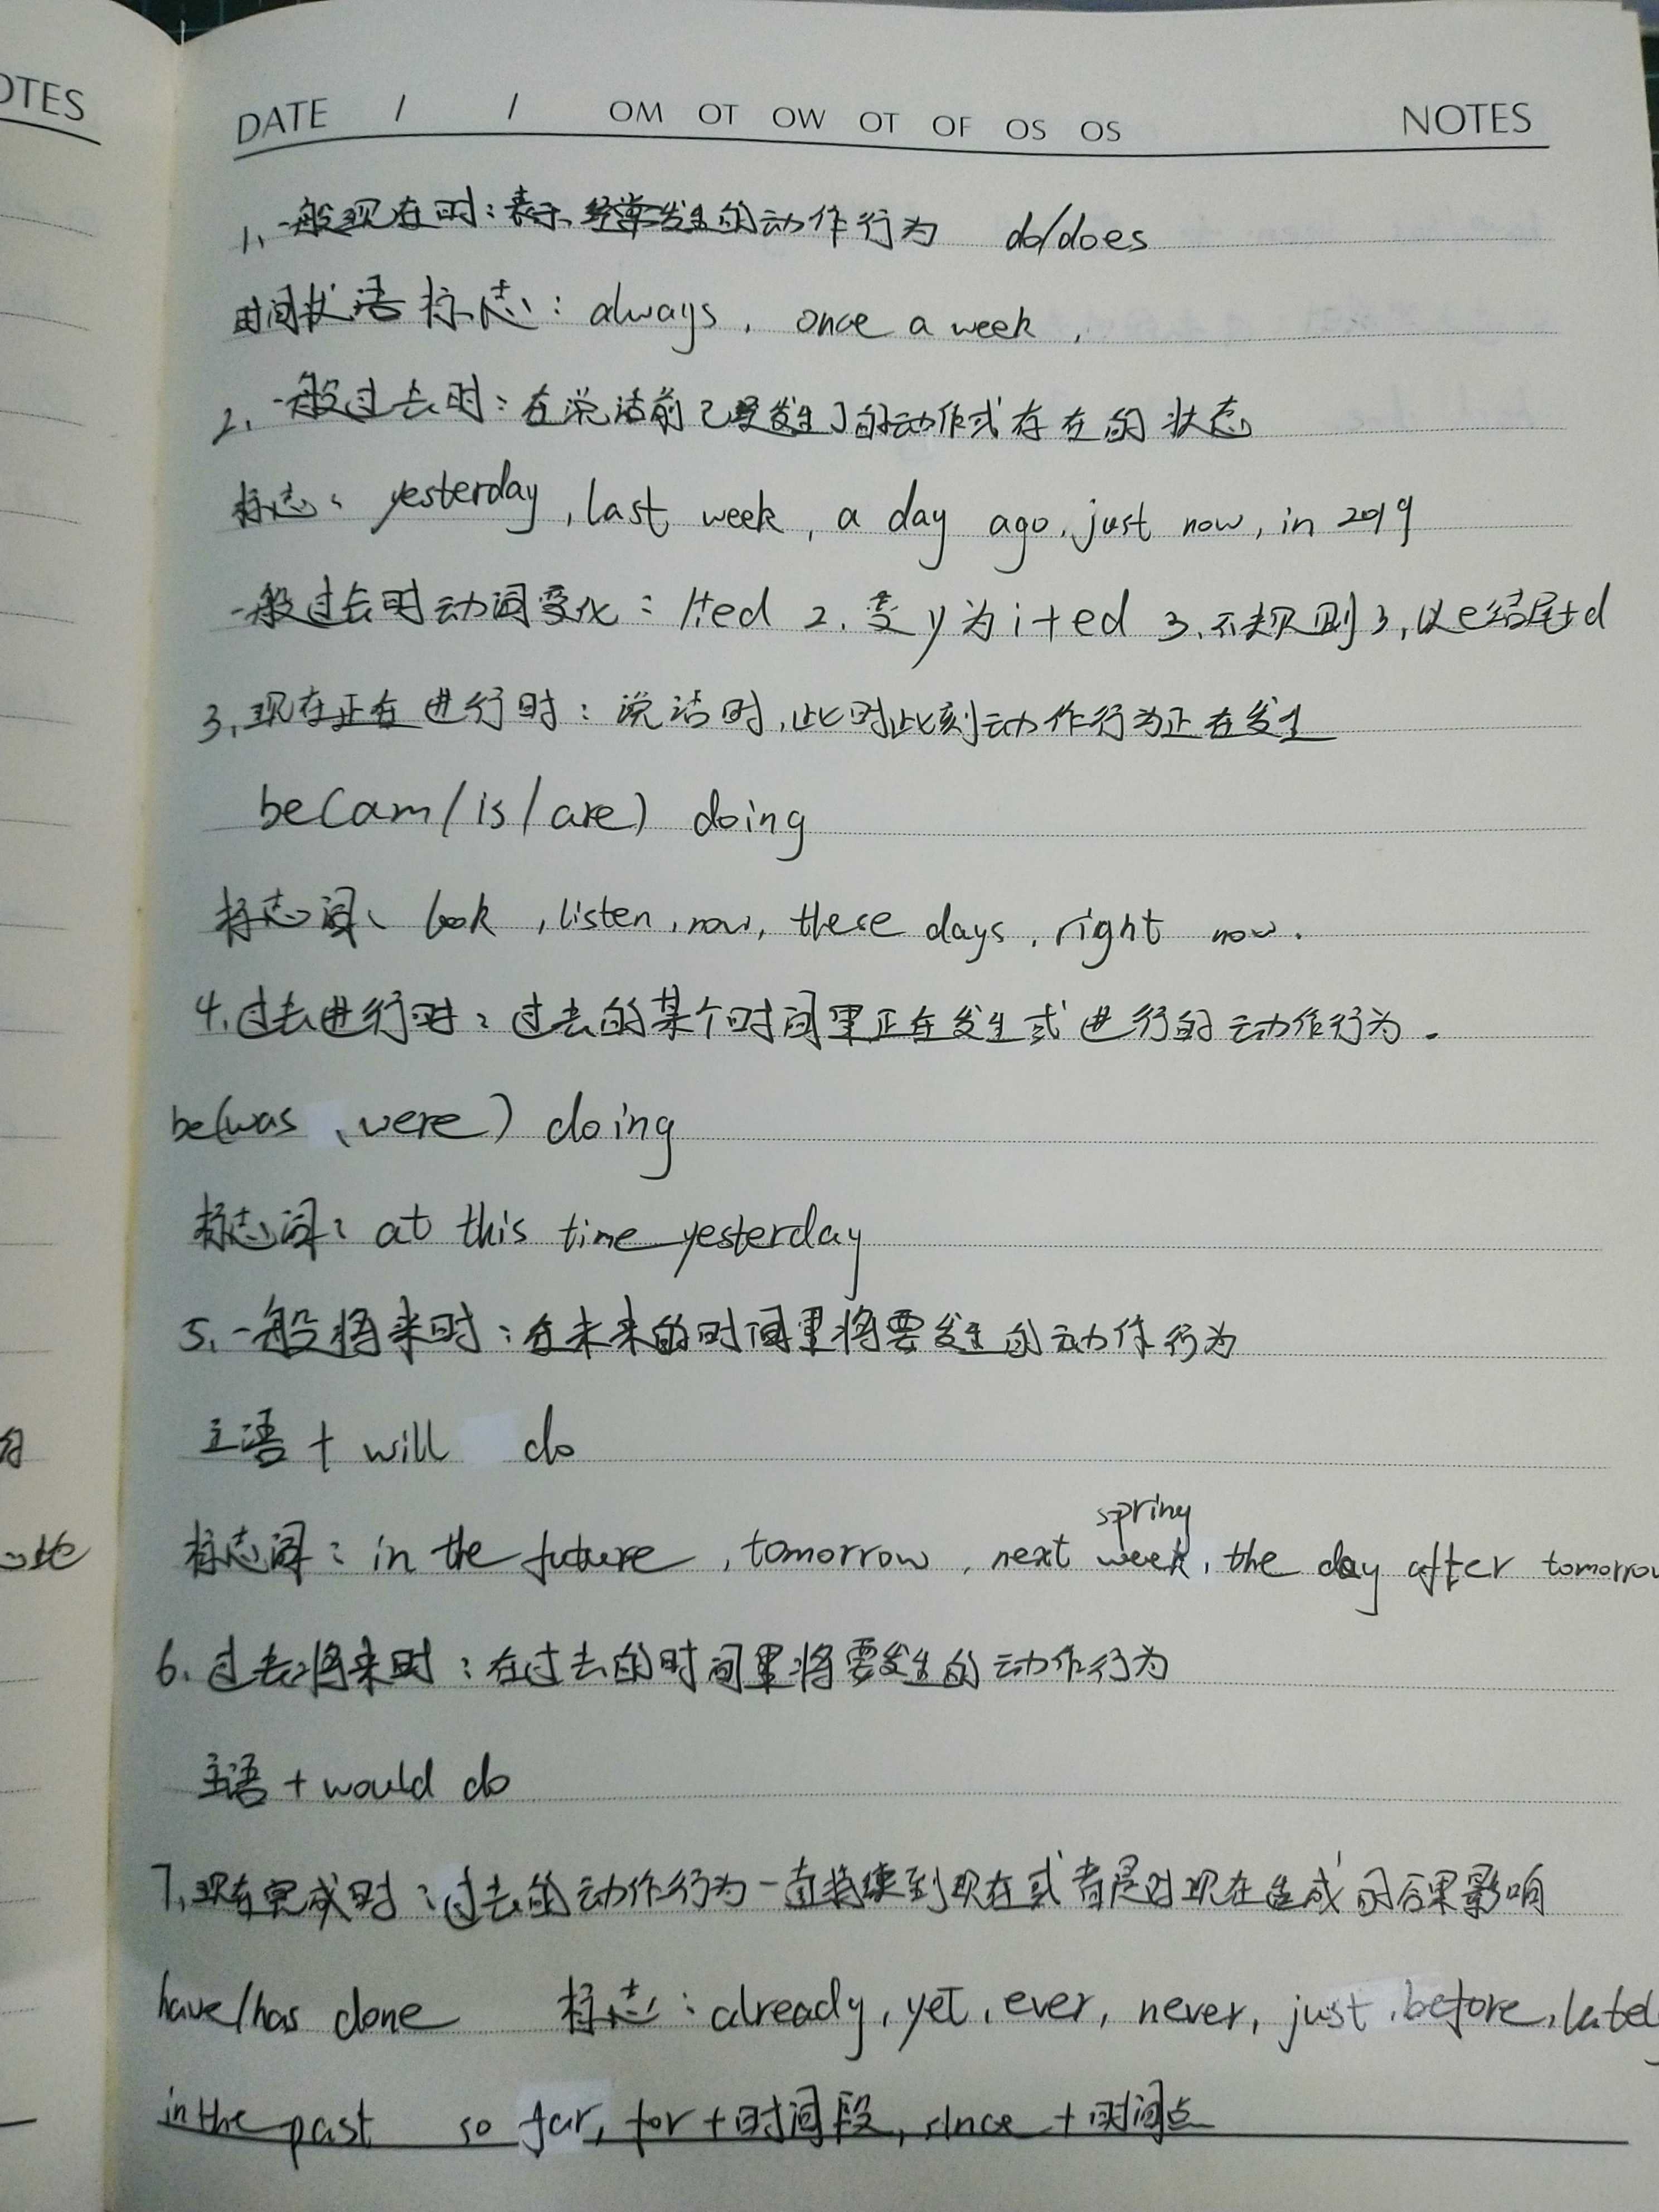 OTES
DATE / / OM OT OW OT OF OS OS NOTES
1、一般现在时：表示经常发生的动作行为 do/does
时间状语标志：always, once a week,
2、一般过去时：在说话前已经发生了的动作或存在的状态
标志：yesterday, last week, a day ago, just now, in 2019
一般过去时动词变化：1.+ed 2、变y为i+ed 3、不规则 3,以e结尾+d
3、现在正在进行时：说话时,此时此刻动作行为正在发生
be(am/is/are) doing
标志词、look, listen, now, these days, right now.
4、过去进行时：过去的某个时间里正在发生或进行的动作行为.
be(was、were) doing
标志词：at this time yesterday
5、一般将来时：在未来的时间里将要发生的动作行为
主语 + will do
spring
标志词：in the future, tomorrow, next week, the day after tomorrow
6、过去将来时：在过去的时间里将要发生的动作行为
主语 + would do
7、现在完成时：过去的动作行为一直持续到现在或者是对现在造成的后果影响
have/has done 标志：already, yet, ever, never, just, before, lately
in the past so far, for+时间段, since+时间点